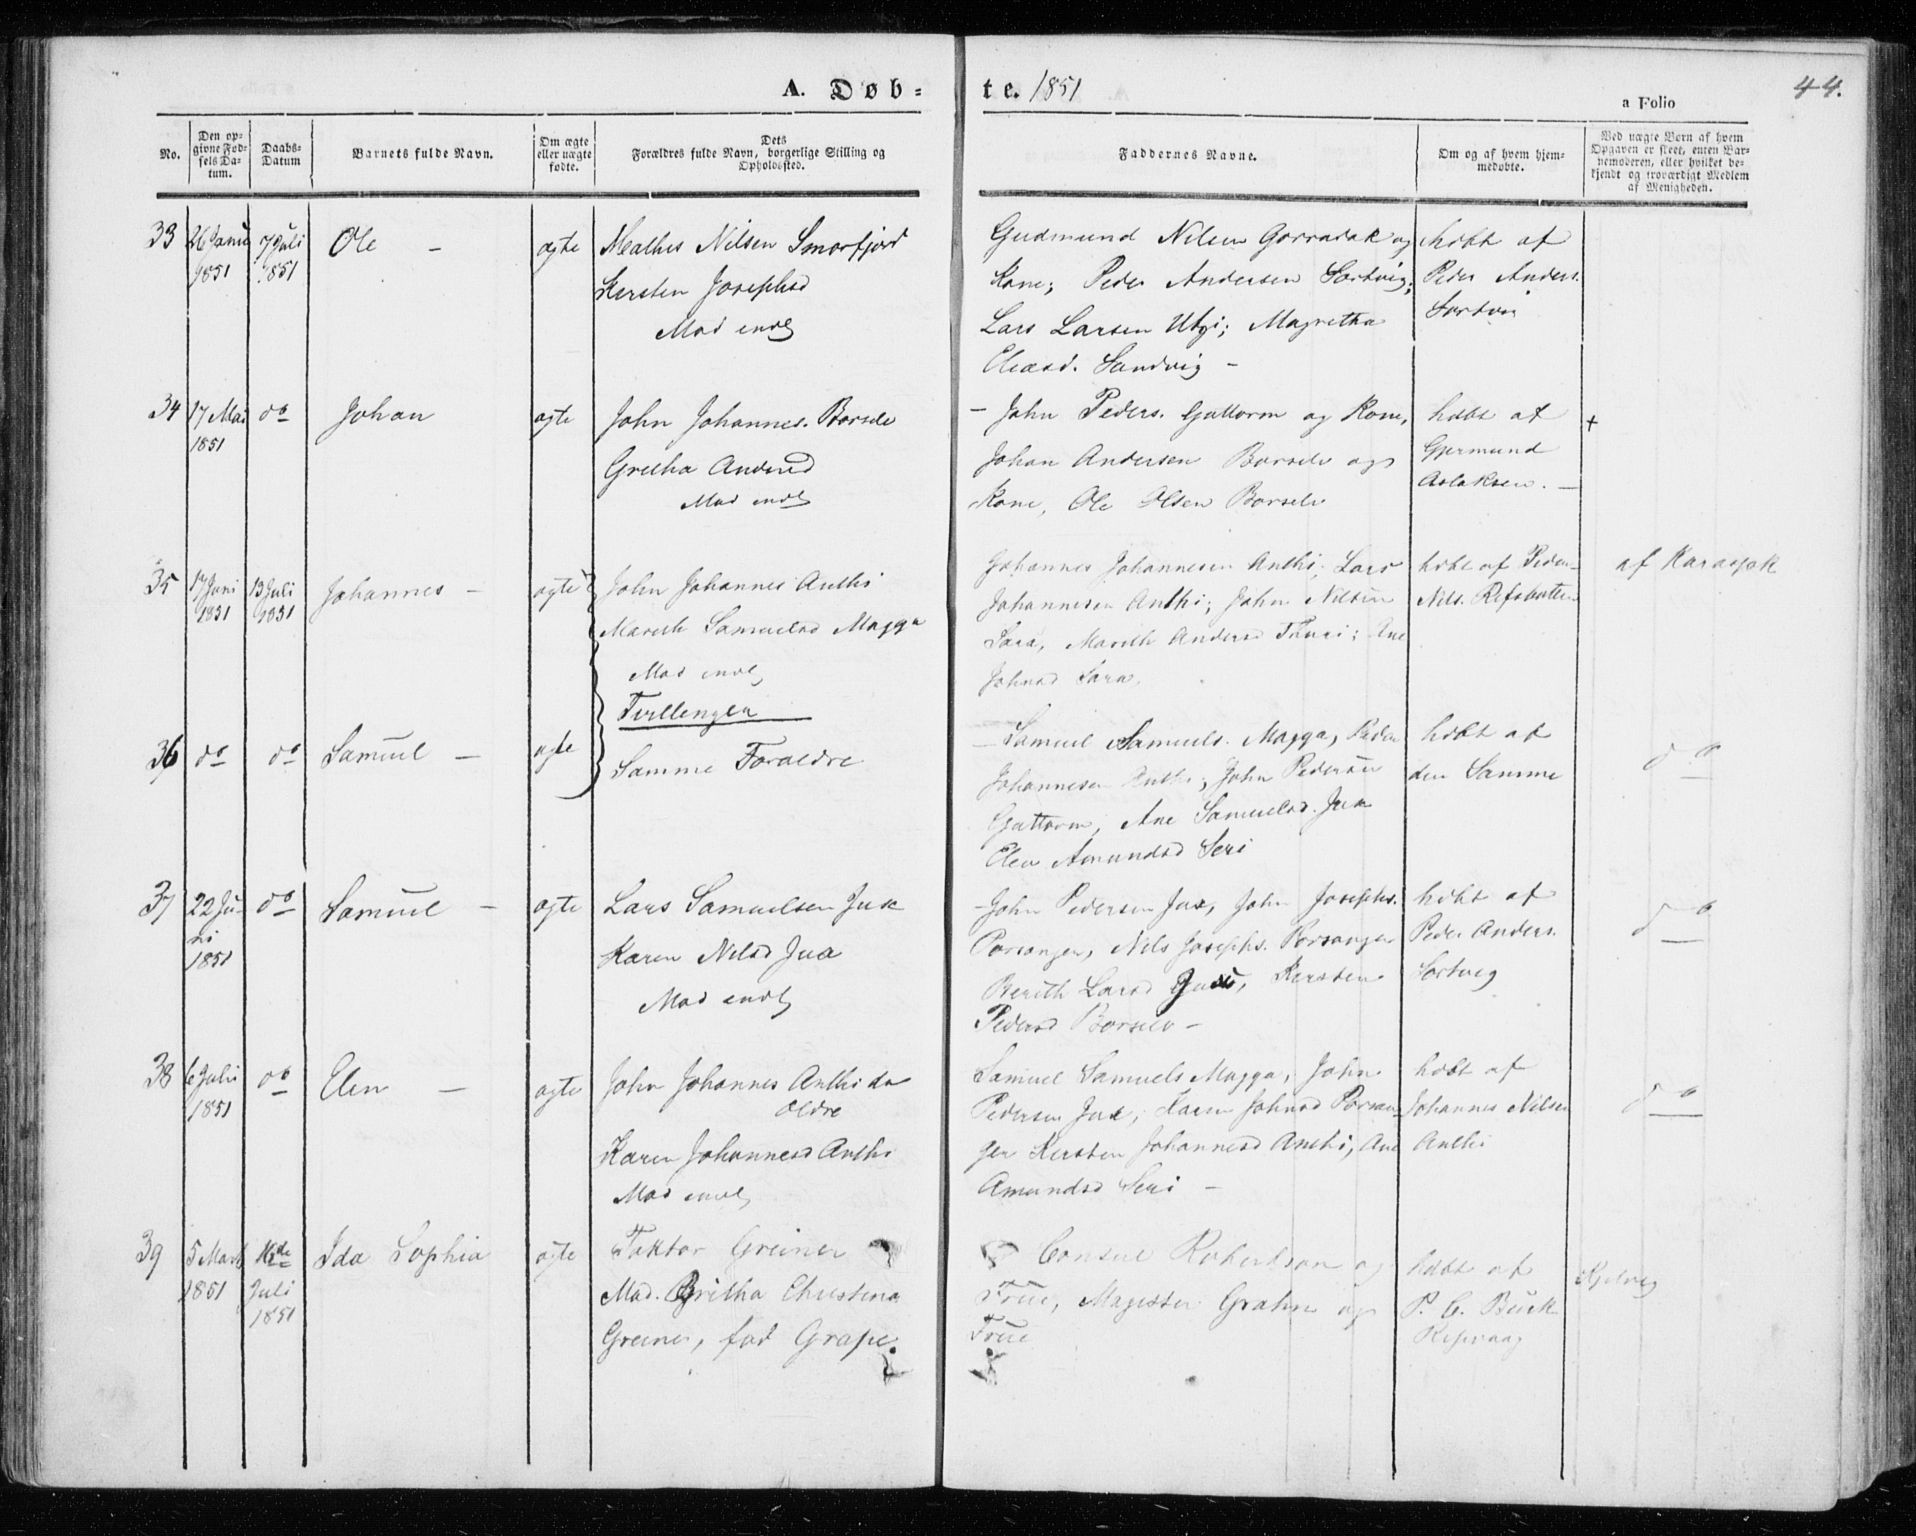 A. Døb=
te. 1851
a Folio
44.
No.
Den op=
givne Fød=
sels Da=
tum.
Daabs=
Datum
Barnets fulde Navn.
Om ægte
eller uægte
fødte.
Dets
Forældres fulde Navn, borgerlige Stilling og
Opholdssted.
Faddernes Navne.
Om og af hvem hjem=
medøbte.
Ved uægte Børn af hvem
Opgaven er skeet, enten Bar=
nemoderen, eller hvilket be=
kjendt og troværdigt Medlem
af Menigheden.
33
26 Janu
1851
7 Juli
1851
Ole -
ægte
Mathis Nilsen Smorfjord
Kersten Josephsd
Mad
Gudmund Nilsen og
Kone; Peder Andersen Sortvig;
Lars Larsen Utsi; Magretha
Eliasd. Sandvig -
hdøbt af
Peder Anders.
Sortvig
34
17 Mai
1851
do
Johan
ægte
John Johannes. Borselv
Gretha Andersd
Mad
- John Peders. Guttorm og Kone,
Johan Andersen Borselv og
Kone, Ole Olsen Borselv
hdøbt af
Gjermund
Aslaksen. -
+
35
17 Juni
1851
13 Juli
1851
Johannes -
ægte
John Johannes Anthi
Marith Samuelsd Magga
Mad
Tvillinger
Johannes Johannesen Anthi; Lars
Johannesen Anthi; John Nilsen
Sara, Marith Andersd Thuri; Ane
Johnsd Sara.
hdøbt af Peder
Nils. Refsbotten
af Karasjok
36
do
do
Samuel -
ægte
Samme Forældre
- Samuel Samuels. Magga, Peder
Johannesen Anthi, John Pedersen
Guttorm, Ane Samuelsd. Jux
Elen Amundsd Seri
hdøbt af
den Samme
do
37
22 Ju-
ni
1851
do
Samuel -
ægte
Lars Samuelsen Jux
Karen Nilsd Jux
Mad
- John Pedersen Jux, John Josephs.
Porsanger, Nils Josephs. Porsanger
Berith Larsd Jux, Kersten
Pedersd Borselv -
hdøbt af
Peder Anders.
Sortvig
do
38
6 Juli
1851
do
Elen -
ægte
John Johannes Anthi den
ældre
Karen Johannesd Anthi
Mad
Samuel Samuels Magga, John
Pedersen Jux, Karen Johnsd Porsan-
ger Kersten Johannesd Anthi, Ane
Amundsd Seri -
hdøbt af
Johannes Nilsen
Anthi
do
39
5 Marts
1851
16de
Juli
1851
Ida Sophia
ægte
Faktor Greiner
Mad. Britha Christina
Greiner, fød Grape.
Consul Robertson og
Frue, Magister Grahn og
Frue
hdøbt af
P. C. Buck
Repvaag
Kjelvig